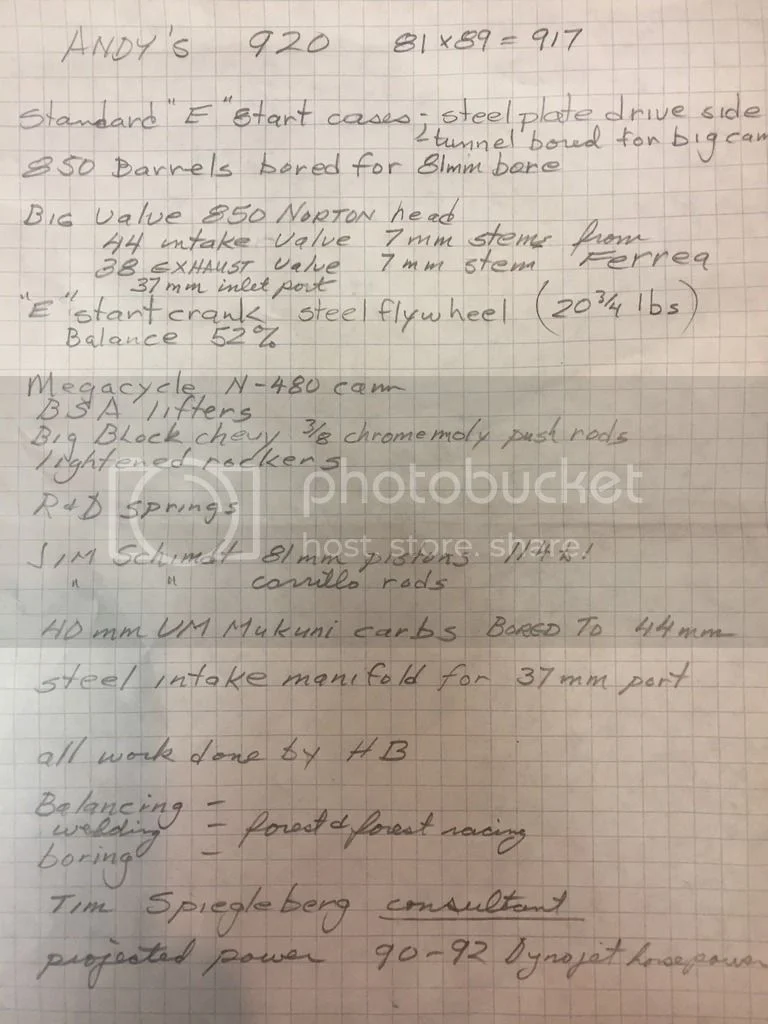 ANDY's 920 81 x 89 = 917
Standard "E" start cases - steel plate drive side
tunnel bored for big cam
850 Barrels bored for 81mm bore
BIG Valve 850 NORTON head
44 intake valve 7mm stems from
38 EXHAUST valve 7mm stem Ferrea
37 mm inlet port
"E" start crank steel flywheel (20 3/4 lbs)
Balance 52%
Megacycle N-480 cam
BSA lifters
Big Block chevy 3/8 chromemoly push rods
lightened rockers
R&D springs
JIM Schimdt 81mm pistons
" " carrillo rods
40 mm VM Mukuni carbs BORED TO 44mm
steel intake manifold for 37mm port
all work done by HB
Balancing -
welding - forest & forest racing
boring -
TIM Spiegleberg consultant
projected power 90-92 Dynojet horsepower
photobucket
host. store. share.